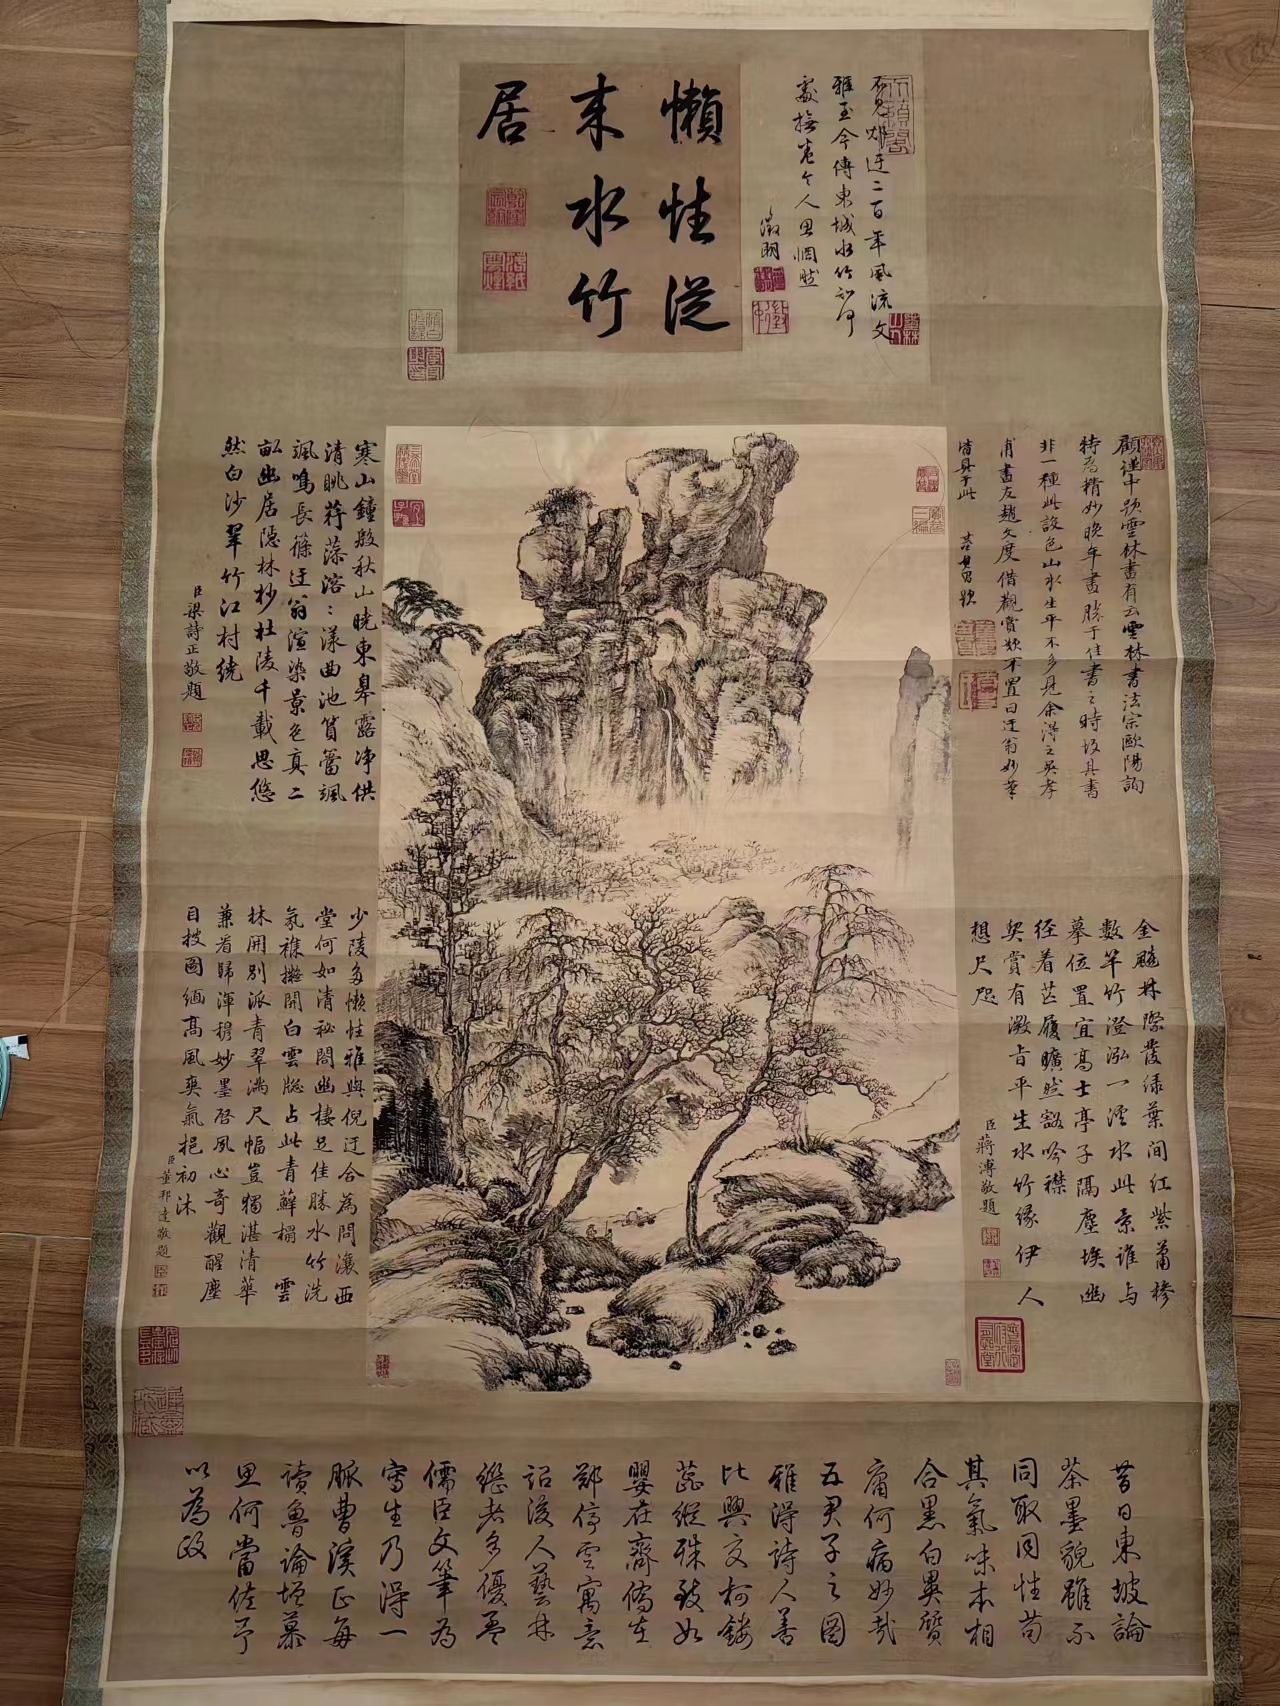 懶性從
来水竹
居
不見
迂二百年風流文
雅至今傳東城水竹知何
處撫卷令人思惘然
徵明
顧謹中題雲林畫有云雲林書法宗歐陽詢
特為精妙晚年畫勝于佳書之時故其書
非一種此設色山水生平不多見余得之吳孝
甫畫友趙文度借觀賞歎不置曰迂翁妙筆
皆具于此
董其昌題
寒山鐘殷秋山曉東皋露净供
清眺荇藻溶溶漾曲池篔簹颯
颯鳴長篠迂翁渲染景色真二
畝幽居隠林杪杜陵千載思悠
然白沙翠竹江村繞
臣梁詩正敬題
金飈林際發緑葉間紅紫蕭槮
數竿竹澄泓一溪水此景誰与
摹位置宜髙士亭子隔塵埃幽
徑着芒履曠然豁吟襟
契賞有澂旨平生水竹緣伊人
想尺咫
臣蔣溥敬題
少陵多懶性雅與倪迂合為問瀼西
堂何如清祕閣幽棲足佳勝水竹洗
氛襍
開白雲牎占此青蘚榻雲
林開別派青翠滿尺幅豈獨湛清華
兼看歸渾穆妙墨啓夙心奇觀醒塵
目披圖緬髙風爽氣挹初沐
臣董邦達敬題
昔日東坡論
茶墨貌雖不
同取同性苟
其氣味本相
合黑白異質
庸何病妙哉
五君子之圖
雅得詩人善
比興交柯鏤
蕊縱殊致如
嬰在齊僑在
鄭停雲寓意
詔後人藝林
繼者多優孟
儒臣文筆為
寫生乃得一
脈曹溪正每
讀魯論壇慕
思何當佐予
以為政